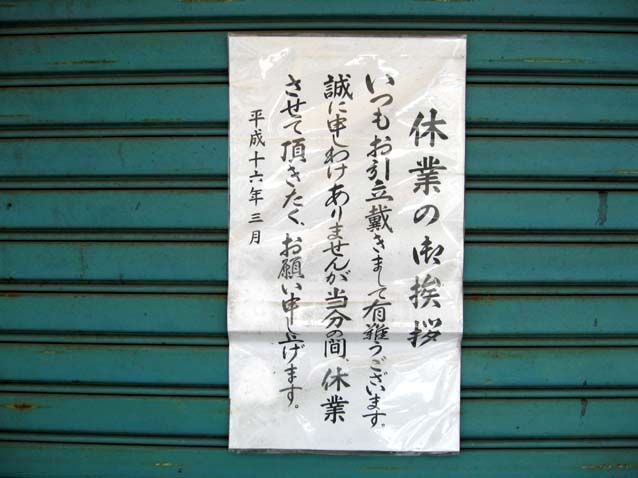 休業の御挨拶
いつもお引立戴きまして有難うございます。
誠に申しわけありませんが当分の間、休業
させて頂きたく、お願い申し上げます。
平成十六年三月